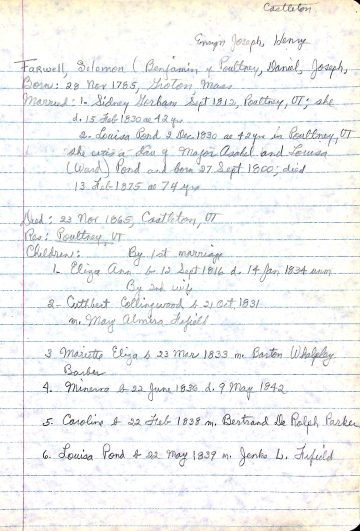 Castleton
Ensign Joseph, Henry
Farwell, Solomon (Benjamin of Poultney, Daniel, Joseph,
Born: 28 Nov 1785, Groton, Mass
Married: 1- Sidney Gorham Sept 1812, Poultney, VT; she
d. 15 Feb 1830 ae 42 yrs
2- Louisa Pond 2 Dec 1830 ae 42 yrs in Poultney, VT
she was a dau of Major Asahel and Louisa
(Ward) Pond and born 27 Sept 1800; died
13 Feb 1875 ae 74 yrs
Died: 23 Nov 1865, Castleton, VT
Res: Poultney, VT
Children: By 1st marriage
1- Eliza Ann b 12 Sept 1816 d. 14 Jan 1834 unm
By 2nd wife
2- Cuthbert Collingwood b 21 Oct 1831
m. May Almira Fifield
3. Mariette Eliza b 23 Mar 1833 m. Barton Whalpley
Barber
4. Minerva b 22 June 1836 d. 9 May 1842
5. Caroline b 22 Feb 1838 m. Bertrand De Rolph Parker
6. Louisa Pond b 22 May 1839 m. Jenks L. Fifield